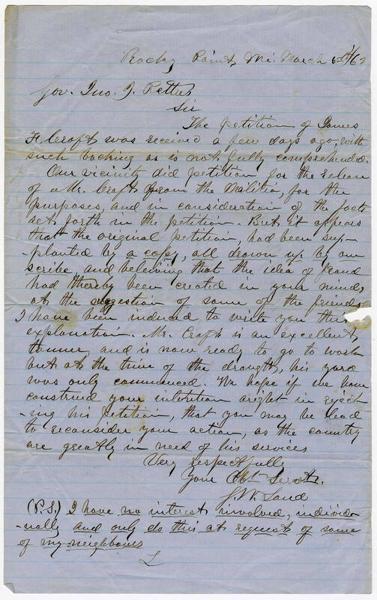 Rocky Point, Mi. March 62
Gov. Jno. J. Pettus
Sir
The petition of James
F. Craft was received a few days ago, with
such backing as is not fully comprehended.
Our vicinity did petition for the release
of a Mr. Craft from the Malitia, for the
purposes, and in consideration of the facts
set forth in the petition. But, it appears
that the original petition, had been sup-
-planted by a copy, all drawn up by one
scribe and believing that the idea of fraud
had thereby been created in your mind,
at the suggestion of some of the friends
I have been induced to write you this
explanation. Mr. Craft is an excellent
tanner, and is now ready to go to work
but at the time of the draught, his yard
was only commenced. We hope if we have
construed your intention aright in reject
-ing his petition, that you may be lead
to reconsider your action, as the country
are greatly in need of his services
Very respectfully
Your Obt. Servt.
(P.S.) I have no interest involved, individ-
-ually and only do this at request of some
of my neighbours
L